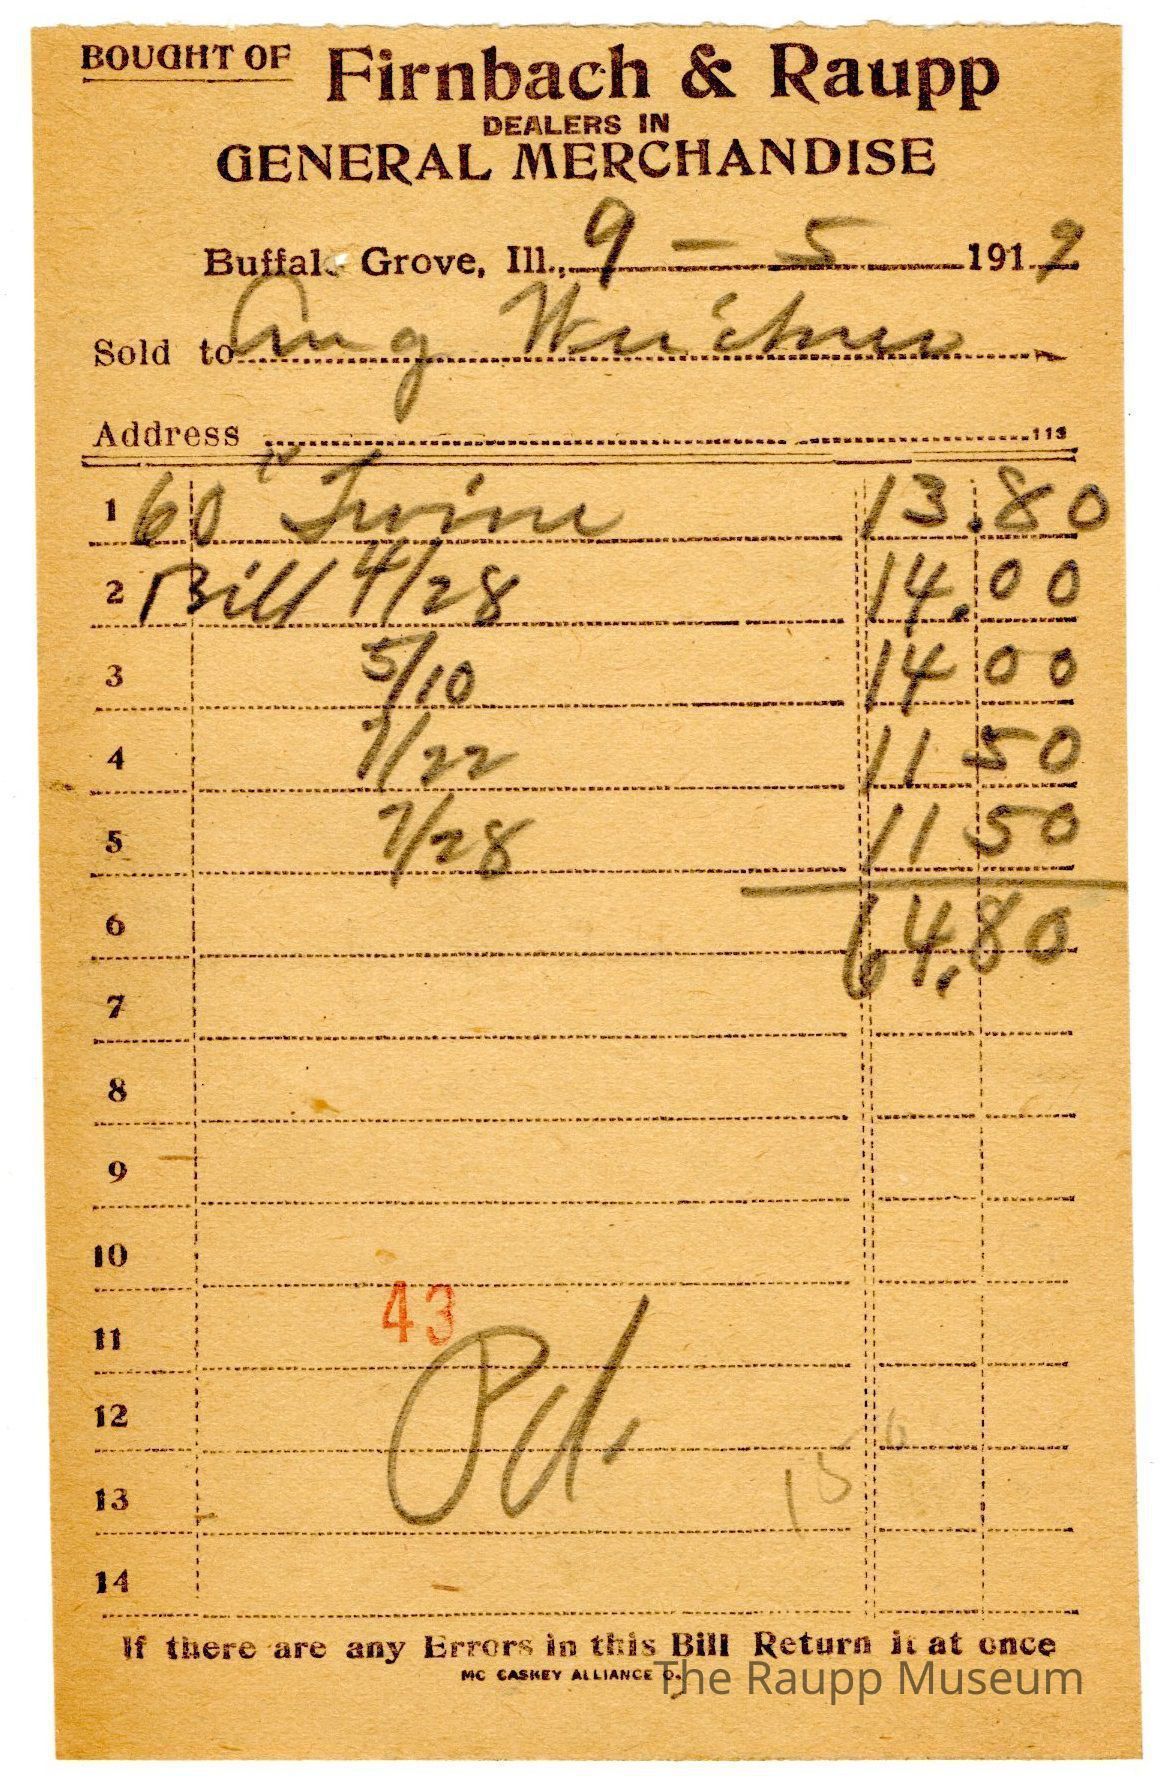 BOUGHT OF Firnbach & Raupp
DEALERS IN
GENERAL MERCHANDISE
Buffalo Grove, Ill., 9 - 5 1919
Sold to Aug
Address 113
1 60 " Twine 13.80
2 Bill 4/28 14.00
3 5/10 14 00
4 7/22 11 50
5 7/28 11 50
6 64.80
7
8
9
10
43
11
Pd.
12
13 15
14
If there are any Errors in this Bill Return it at once
MC CASKEY ALLIANCE O.
The Raupp Museum